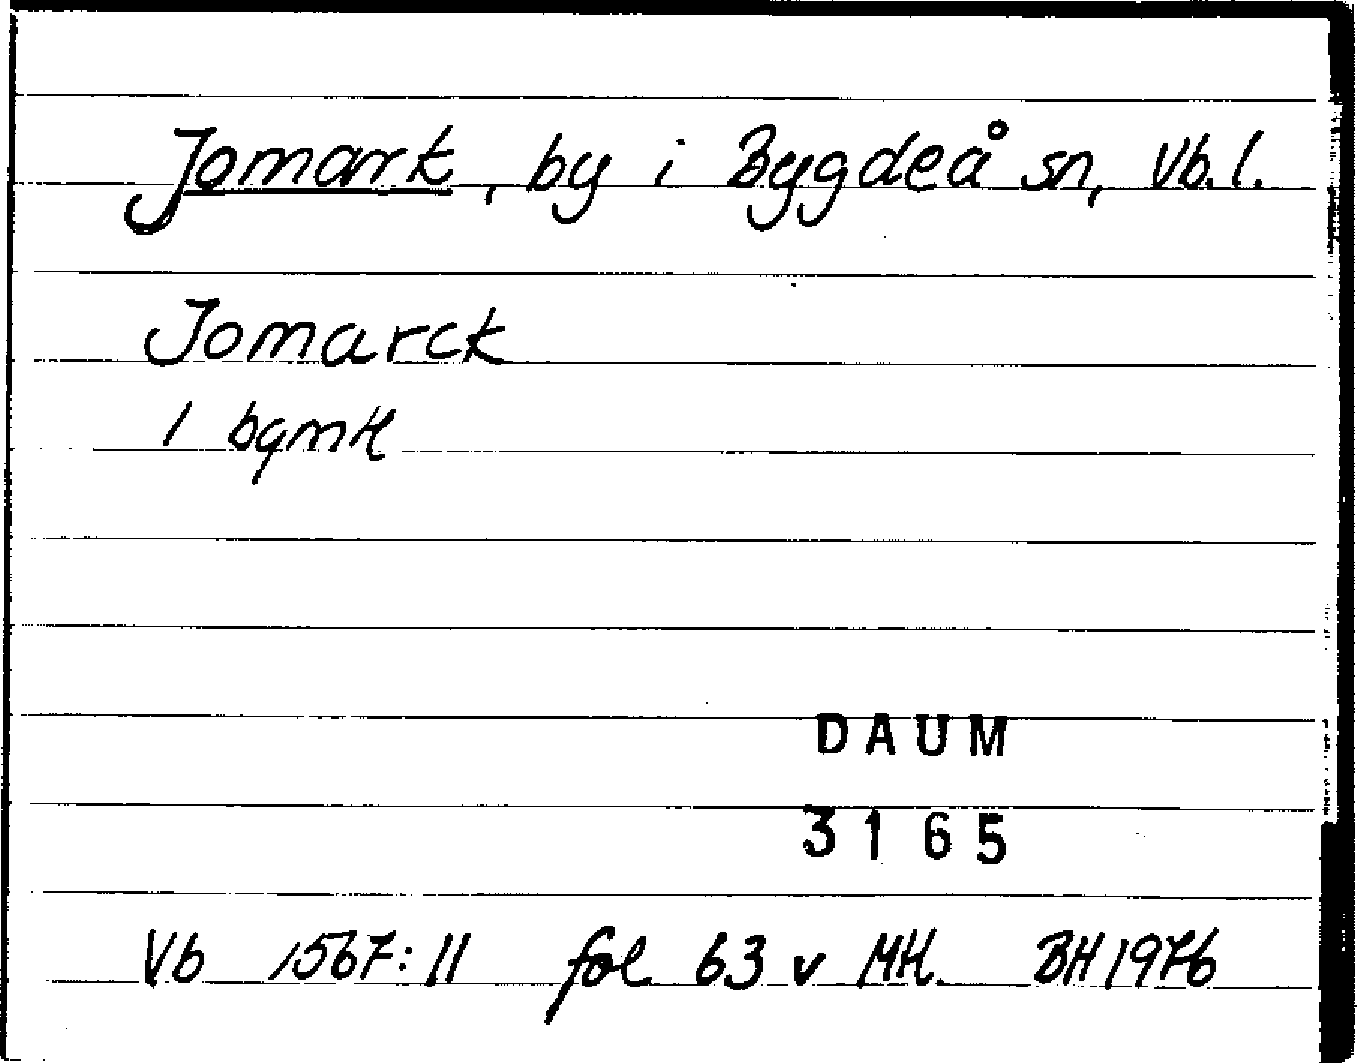 Jomark, by i Bygdeå sn, Vb. l.
Jomarck
1 bgmH
DAUM
3165
Vb 1567:11 fol 63 v MH. BH 1976